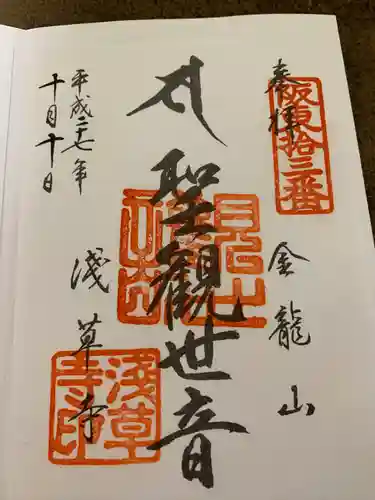 奉拝
坂東拾三番
金龍山
聖觀世音
平成二十七年
十月十日
浅草寺
浅草寺印